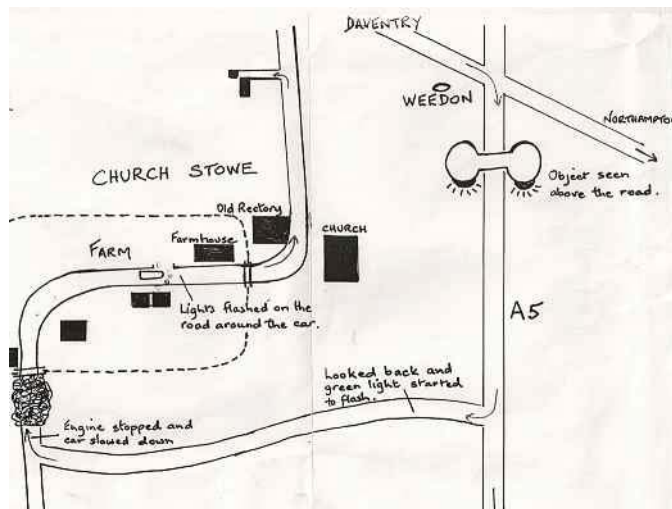 DAVENTRY
WEEDON
NORTHAMPTON
Object seen
above the road.
CHURCH STOWE
Old Rectory
CHURCH
Farmhouse
FARM
Lights flashed on the
road around the car.
A5
Looked back and
green light started
to flash.
Engine stopped and
car slowed down